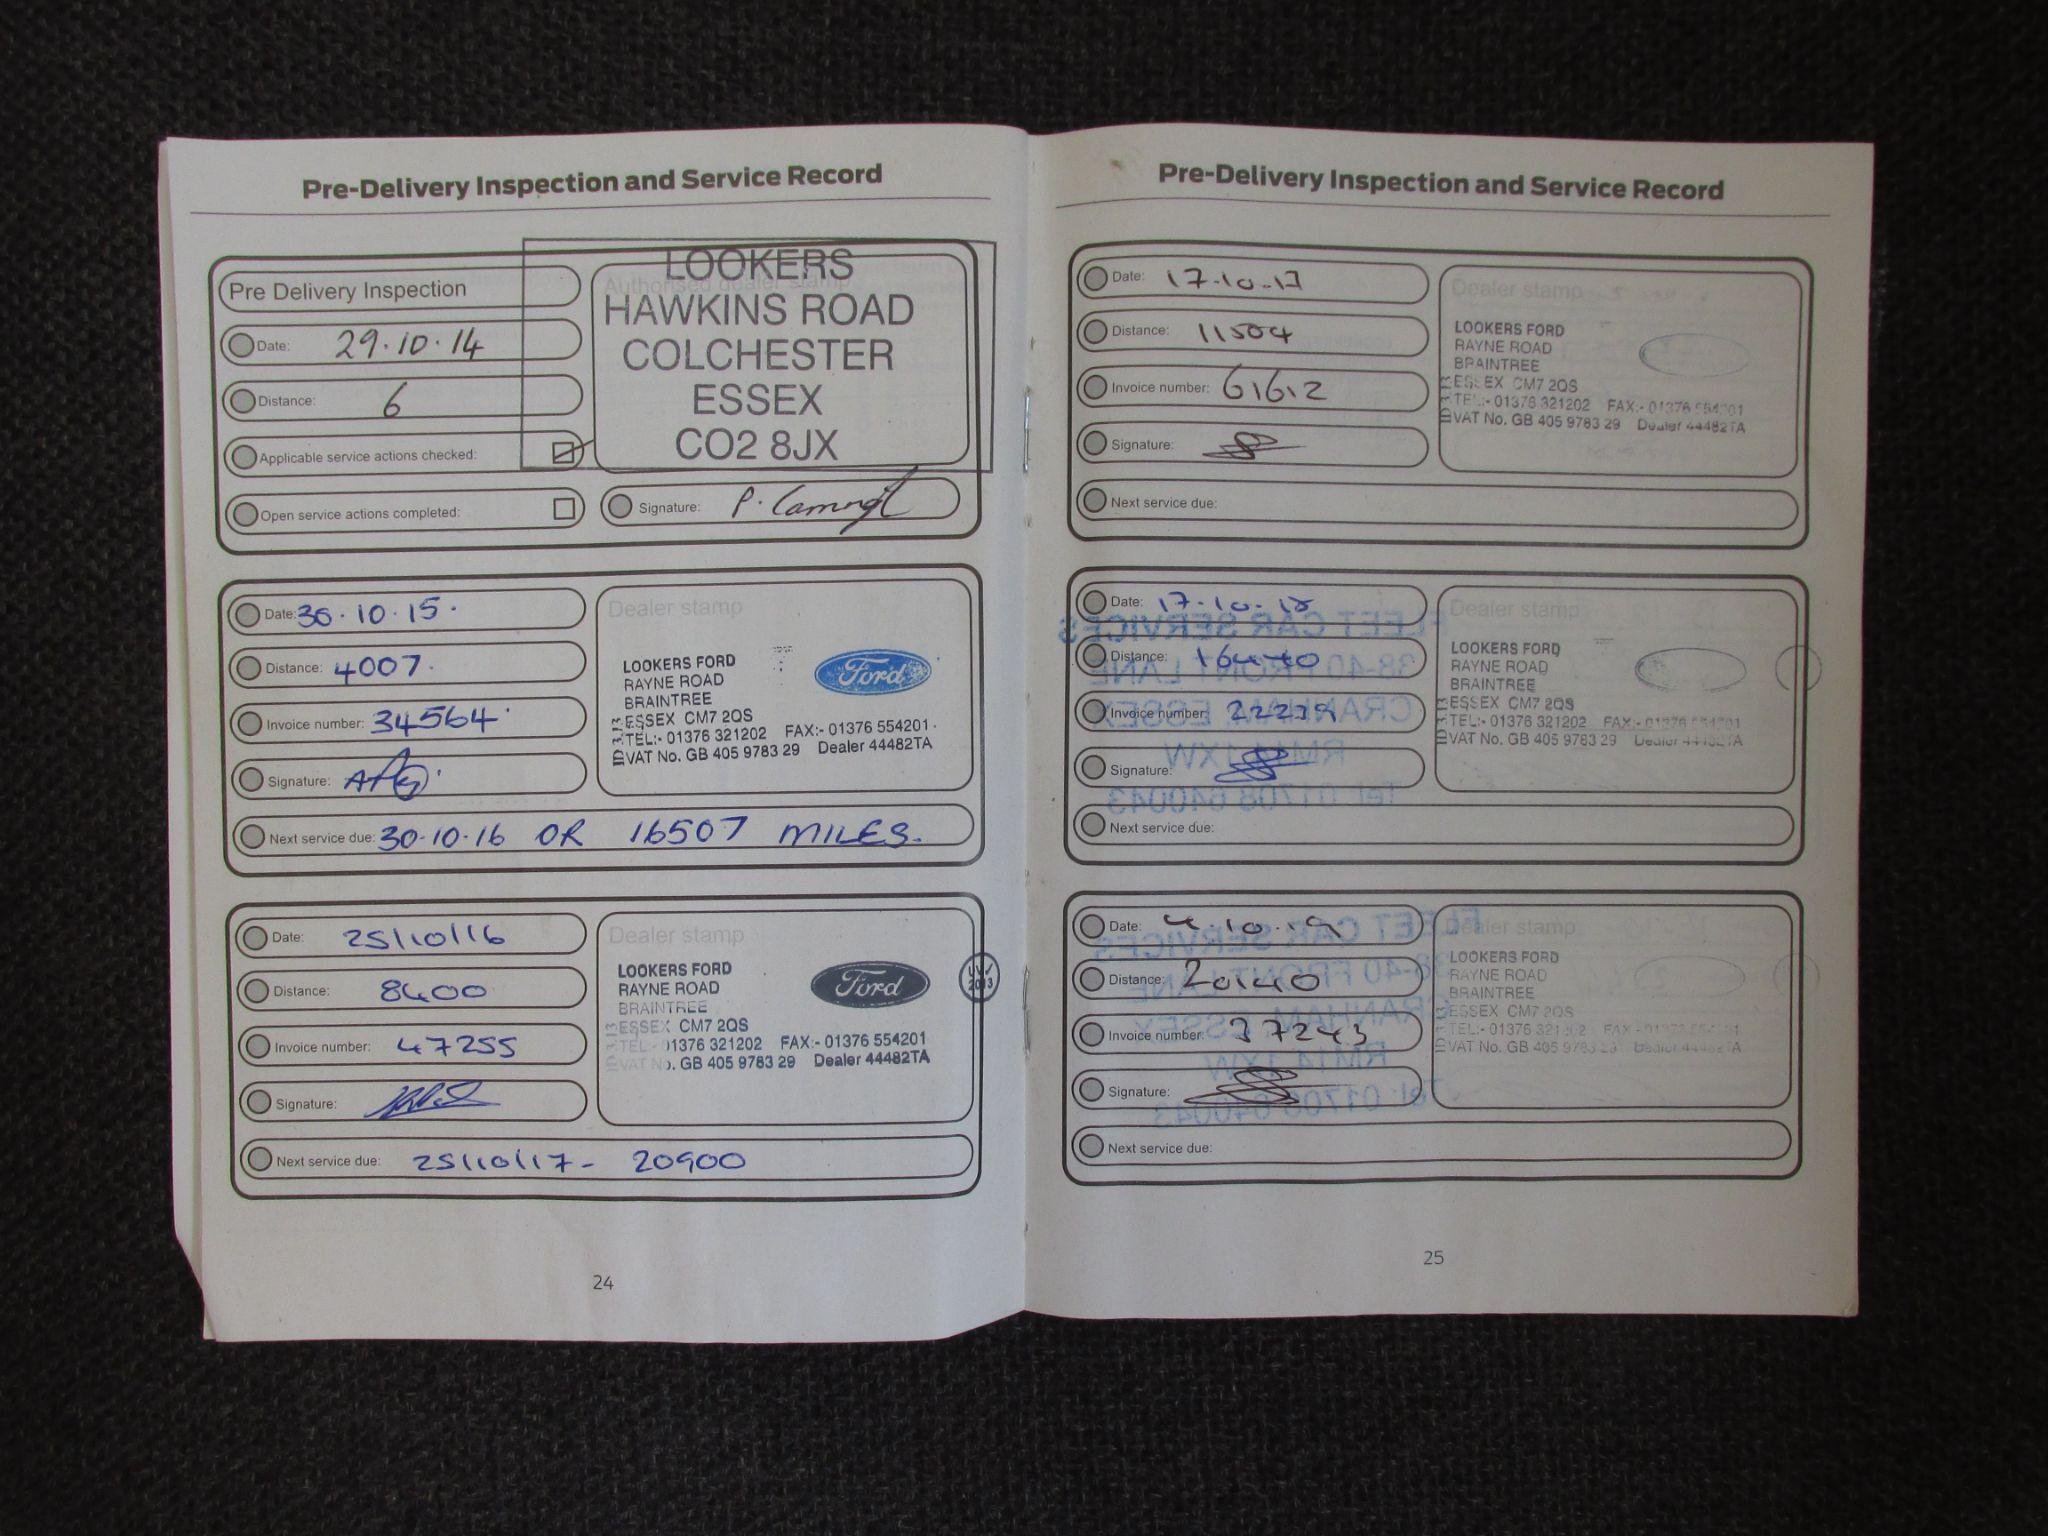 Pre-Delivery Inspection and Service Record
Pre Delivery Inspection
Date: 29.10.14
Distance: 6
Applicable service actions checked:
Open service actions completed:
Authorised dealer stamp
LOOKERS
HAWKINS ROAD
COLCHESTER
ESSEX
CO2 8JX
Signature:
Date: 30.10.15.
Distance: 4007.
Invoice number: 34564
Signature:
Dealer stamp
LOOKERS FORD
RAYNE ROAD
BRAINTREE
ESSEX CM7 2QS
TEL:- 01376 321202 FAX:- 01376 554201
VAT No. GB 405 9783 29 Dealer 44482TA
Ford
Next service due: 30.10.16 OR 16507 MILES.
Date: 25/10/16
Distance: 8400
Invoice number: 47255
Signature:
Dealer stamp
LOOKERS FORD
RAYNE ROAD
BRAINTREE
ESSEX CM7 2QS
TEL:- 01376 321202 FAX:- 01376 554201
VAT No. GB 405 9783 29 Dealer 44482TA
Ford
2013
Next service due: 25/10/17 - 20900
24
Pre-Delivery Inspection and Service Record
Date: 17.10.17
Distance: 11504
Invoice number: 61612
Signature:
Dealer stamp
LOOKERS FORD
RAYNE ROAD
BRAINTREE
ESSEX CM7 2QS
TEL:- 01376 321202 FAX:- 01376 554201
VAT No. GB 405 9783 29 Dealer 44482TA
Next service due:
Date: 17.10.18
Distance: 16440
Invoice number:
Signature:
Dealer stamp
LOOKERS FORD
RAYNE ROAD
BRAINTREE
ESSEX CM7 2QS
TEL:- 01376 321202 FAX:- 01376 554201
VAT No. GB 405 9783 29 Dealer 44482TA
FLEET CAR SERVICES
38-40 FRONT LANE
CRANHAM ESSEX
RM14 1XW
Tel: 01708 640043
Next service due:
Date: 4.10.19
Distance: 20140
Invoice number: 37243
Signature:
Dealer stamp
LOOKERS FORD
RAYNE ROAD
BRAINTREE
ESSEX CM7 2QS
TEL:- 01376 321202 FAX:- 01376 554201
VAT No. GB 405 9783 29 Dealer 44482TA
FLEET CAR SERVICES
38-40 FRONT LANE
CRANHAM ESSEX
RM14 1XW
Tel: 01708 640043
Next service due:
25